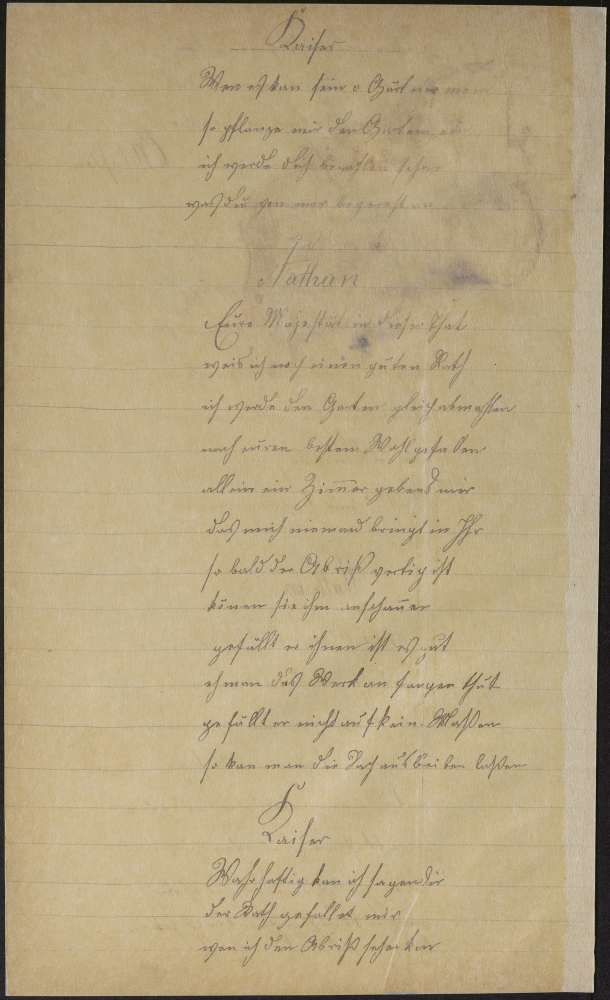 Kaiser
Wen es kan sein o Gärtner mein
so pflanze mir den Garten ein
ich werde dich bezahlen schon
was du von mir begerest
Nathan
Eure Majestät in dieser That
weis ich noch einen guten Rath
ich werde den Garten gleich abmahlen
nach euren besten Wohlgefallen
allein ein Zimmer gebend mir
das mich niemand bringt in Ihr
so bald der Abriß vertig ist
könen sie ihm anschauen
gefällt er ihnen ist es gut
eh man das Werk an fangen thut
gefällt er nicht auf kein Maßen
so kan man die Sach aus bleiben laßen
Kaiser
Wahrhaftig kan ich sagen dir
der Rath gefallet mir
wen ich den Abriß